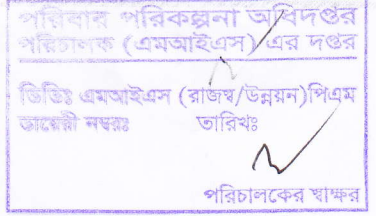 পরিবার পরিকল্পনা অধিদপ্তর
পরিচালক (এমআইএস) এর দপ্তর
ডিডিঃ এমআইএস (রাজস্ব/উন্নয়ন)পিএম
ডায়েরী নম্বরঃ তারিখঃ
পরিচালকের স্বাক্ষর